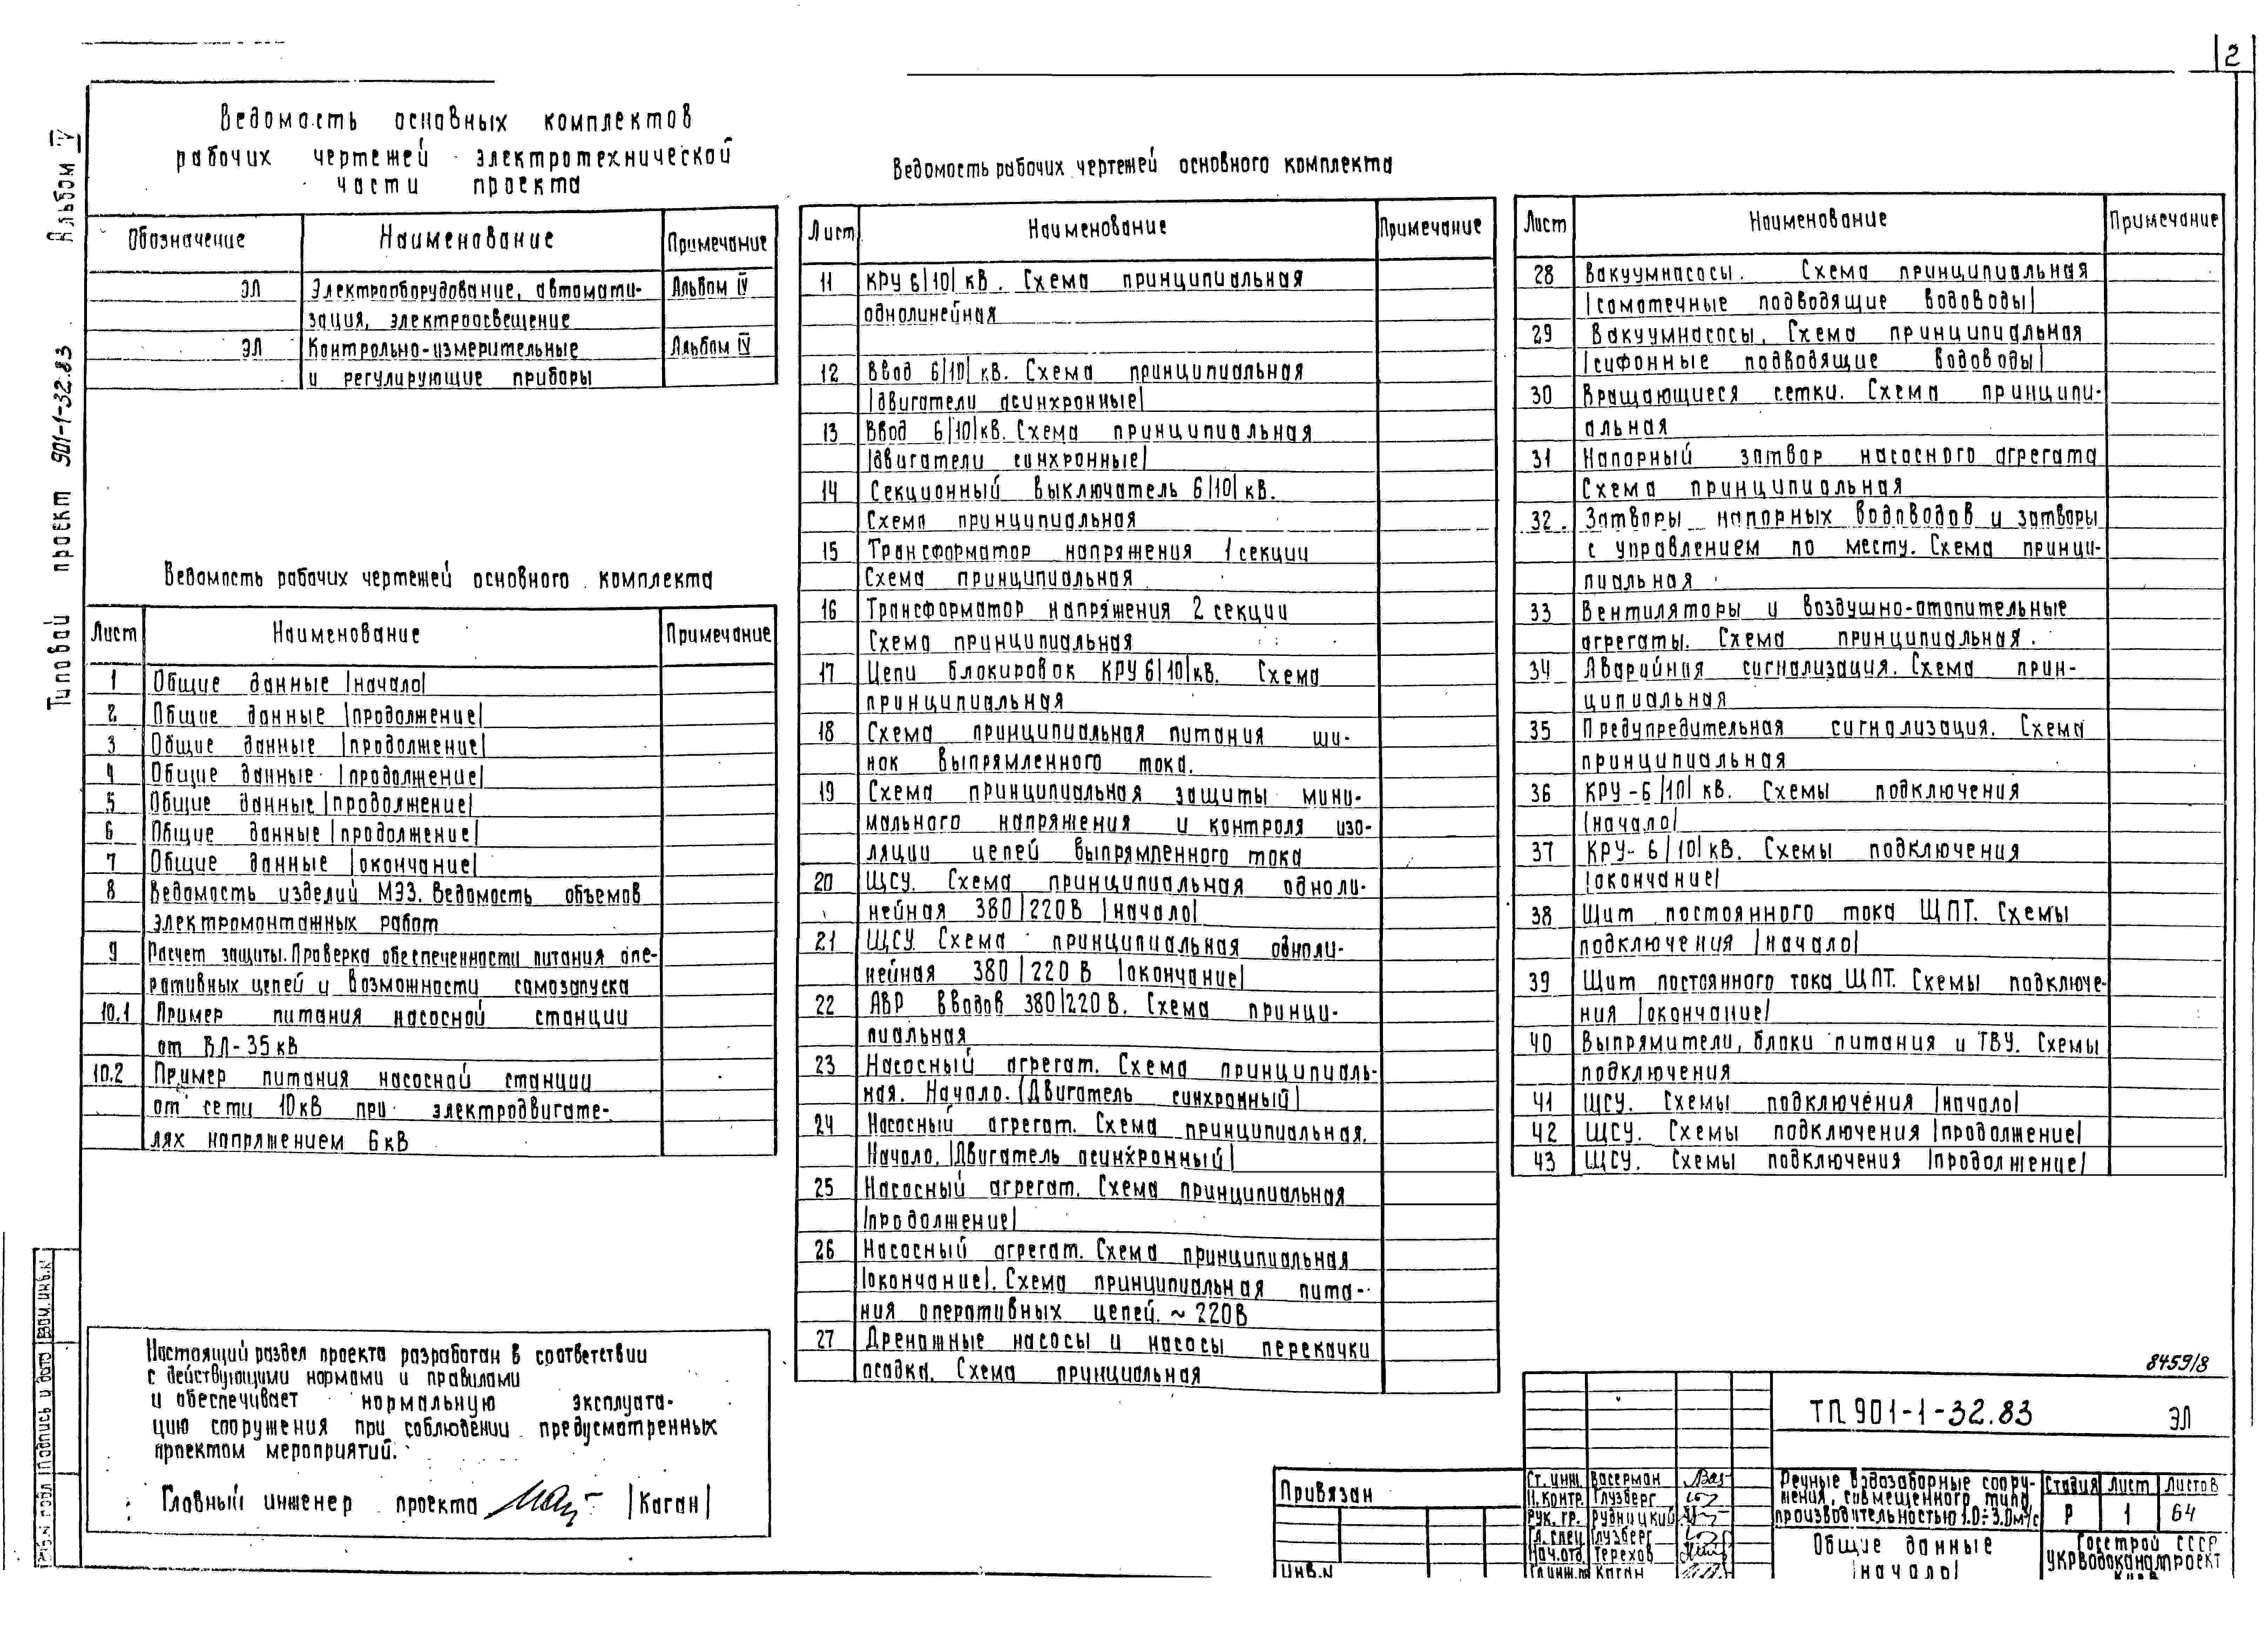 2
Альбом IV
Типовой проект 901-1-32.83
Ведомость основных комплектов
рабочих чертежей электротехнической
части проекта
Обозначение Наименование Примечание
ЭЛ Электрооборудование, автомати- Альбом IV
зация, электроосвещение
ЭЛ Контрольно-измерительные Альбом IV
и регулирующие приборы
Ведомость рабочих чертежей основного комплекта
Лист Наименование Примечание
1 Общие данные |начало|
2 Общие данные |продолжение|
3 Общие данные |продолжение|
4 Общие данные |продолжение|
5 Общие данные |продолжение|
6 Общие данные |продолжение|
7 Общие данные |окончание|
8 Ведомость изделий МЭЗ. Ведомость объемов
электромонтажных работ
9 Расчет защиты. Проверка обеспеченности питания опе-
ративных цепей и возможности самозапуска
10.1 Пример питания насосной станции
от ВЛ-35кВ
10.2 Пример питания насосной станции
от сети 10кВ при электродвигате-
лях напряжением 6кВ
Настоящий раздел проекта разработан в соответствии
с действующими нормами и правилами
и обеспечивает нормальную эксплуата-
цию сооружения при соблюдении предусмотренных
проектом мероприятий.
Главный инженер проекта |Каган|
Ведомость рабочих чертежей основного комплекта
Лист Наименование Примечание
11 КРУ 6|10| кВ. Схема принципиальная
однолинейная
12 Ввод 6|10| кВ. Схема принципиальная
|двигатели асинхронные|
13 Ввод 6|10| кВ. Схема принципиальная
|двигатели синхронные|
14 Секционный выключатель 6|10| кВ.
Схема принципиальная
15 Трансформатор напряжения 1 секции
Схема принципиальная
16 Трансформатор напряжения 2 секции
Схема принципиальная
17 Цепи блокировок КРУ 6|10| кВ. Схема
принципиальная
18 Схема принципиальная питания ши-
нок выпрямленного тока.
19 Схема принципиальная защиты мини-
мального напряжения и контроля изо-
ляции цепей выпрямленного тока
20 ЩСУ. Схема принципиальная одноли-
нейная 380|220В |начало|
21 ЩСУ. Схема принципиальная одноли-
нейная 380|220В |окончание|
22 АВР вводов 380|220В. Схема принци-
пиальная
23 Насосный агрегат. Схема принципиаль-
ная. Начало. |Двигатель синхронный|
24 Насосный агрегат. Схема принципиальная.
Начало. |Двигатель асинхронный|
25 Насосный агрегат. Схема принципиальная
|продолжение|
26 Насосный агрегат. Схема принципиальная
|окончание|. Схема принципиальная пита-
ния оперативных цепей. ~ 220В
27 Дренажные насосы и насосы перекачки
осадка. Схема принципиальная
Лист Наименование Примечание
28 Вакуумнасосы. Схема принципиальная
|самотечные подводящие водоводы|
29 Вакуумнасосы. Схема принципиальная
|сифонные подводящие водоводы|
30 Вращающиеся сетки. Схема принципи-
альная
31 Напорный затвор насосного агрегата
Схема принципиальная
32. Затворы напорных водоводов и затворы
с управлением по месту. Схема принци-
пиальная
33 Вентиляторы и воздушно-отопительные
агрегаты. Схема принципиальная.
34 Аварийная сигнализация. Схема прин-
ципиальная
35 Предупредительная сигнализация. Схема
принципиальная
36 КРУ-6|10| кВ. Схемы подключения
|начало|
37 КРУ-6|10| кВ. Схемы подключения
|окончание|
38 Щит постоянного тока ЩПТ. Схемы
подключения |начало|
39 Щит постоянного тока ЩПТ. Схемы подключе-
ния |окончание|
40 Выпрямители, блоки питания и ТВУ. Схемы
подключения
41 ЩСУ. Схемы подключения |начало|
42 ЩСУ. Схемы подключения |продолжение|
43 ЩСУ. Схемы подключения |продолжение|
8459/8
ТП 901-1-32.83 ЭЛ
Привязан
Инв.N
Ст. инж. Васерман
Н. контр. Глузберг
Рук. гр. Рудницкий
Гл. спец Глузберг
Нач.отд Терехов
Гл.инж.пр Каган
Речные водозаборные соору-
жения, совмещенного типа
производительностью 1.0÷3.0м³/с
Стадия Лист Листов
Р 1 64
Общие данные
|начало|
Госстрой СССР
Укрводоканалпроект
Киев
Взам. инв.N
Подпись и дата